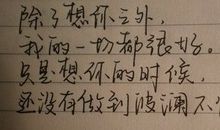 除了想你之外，
我的一切都很好。
只是想你的时候，
还没有做到波澜不